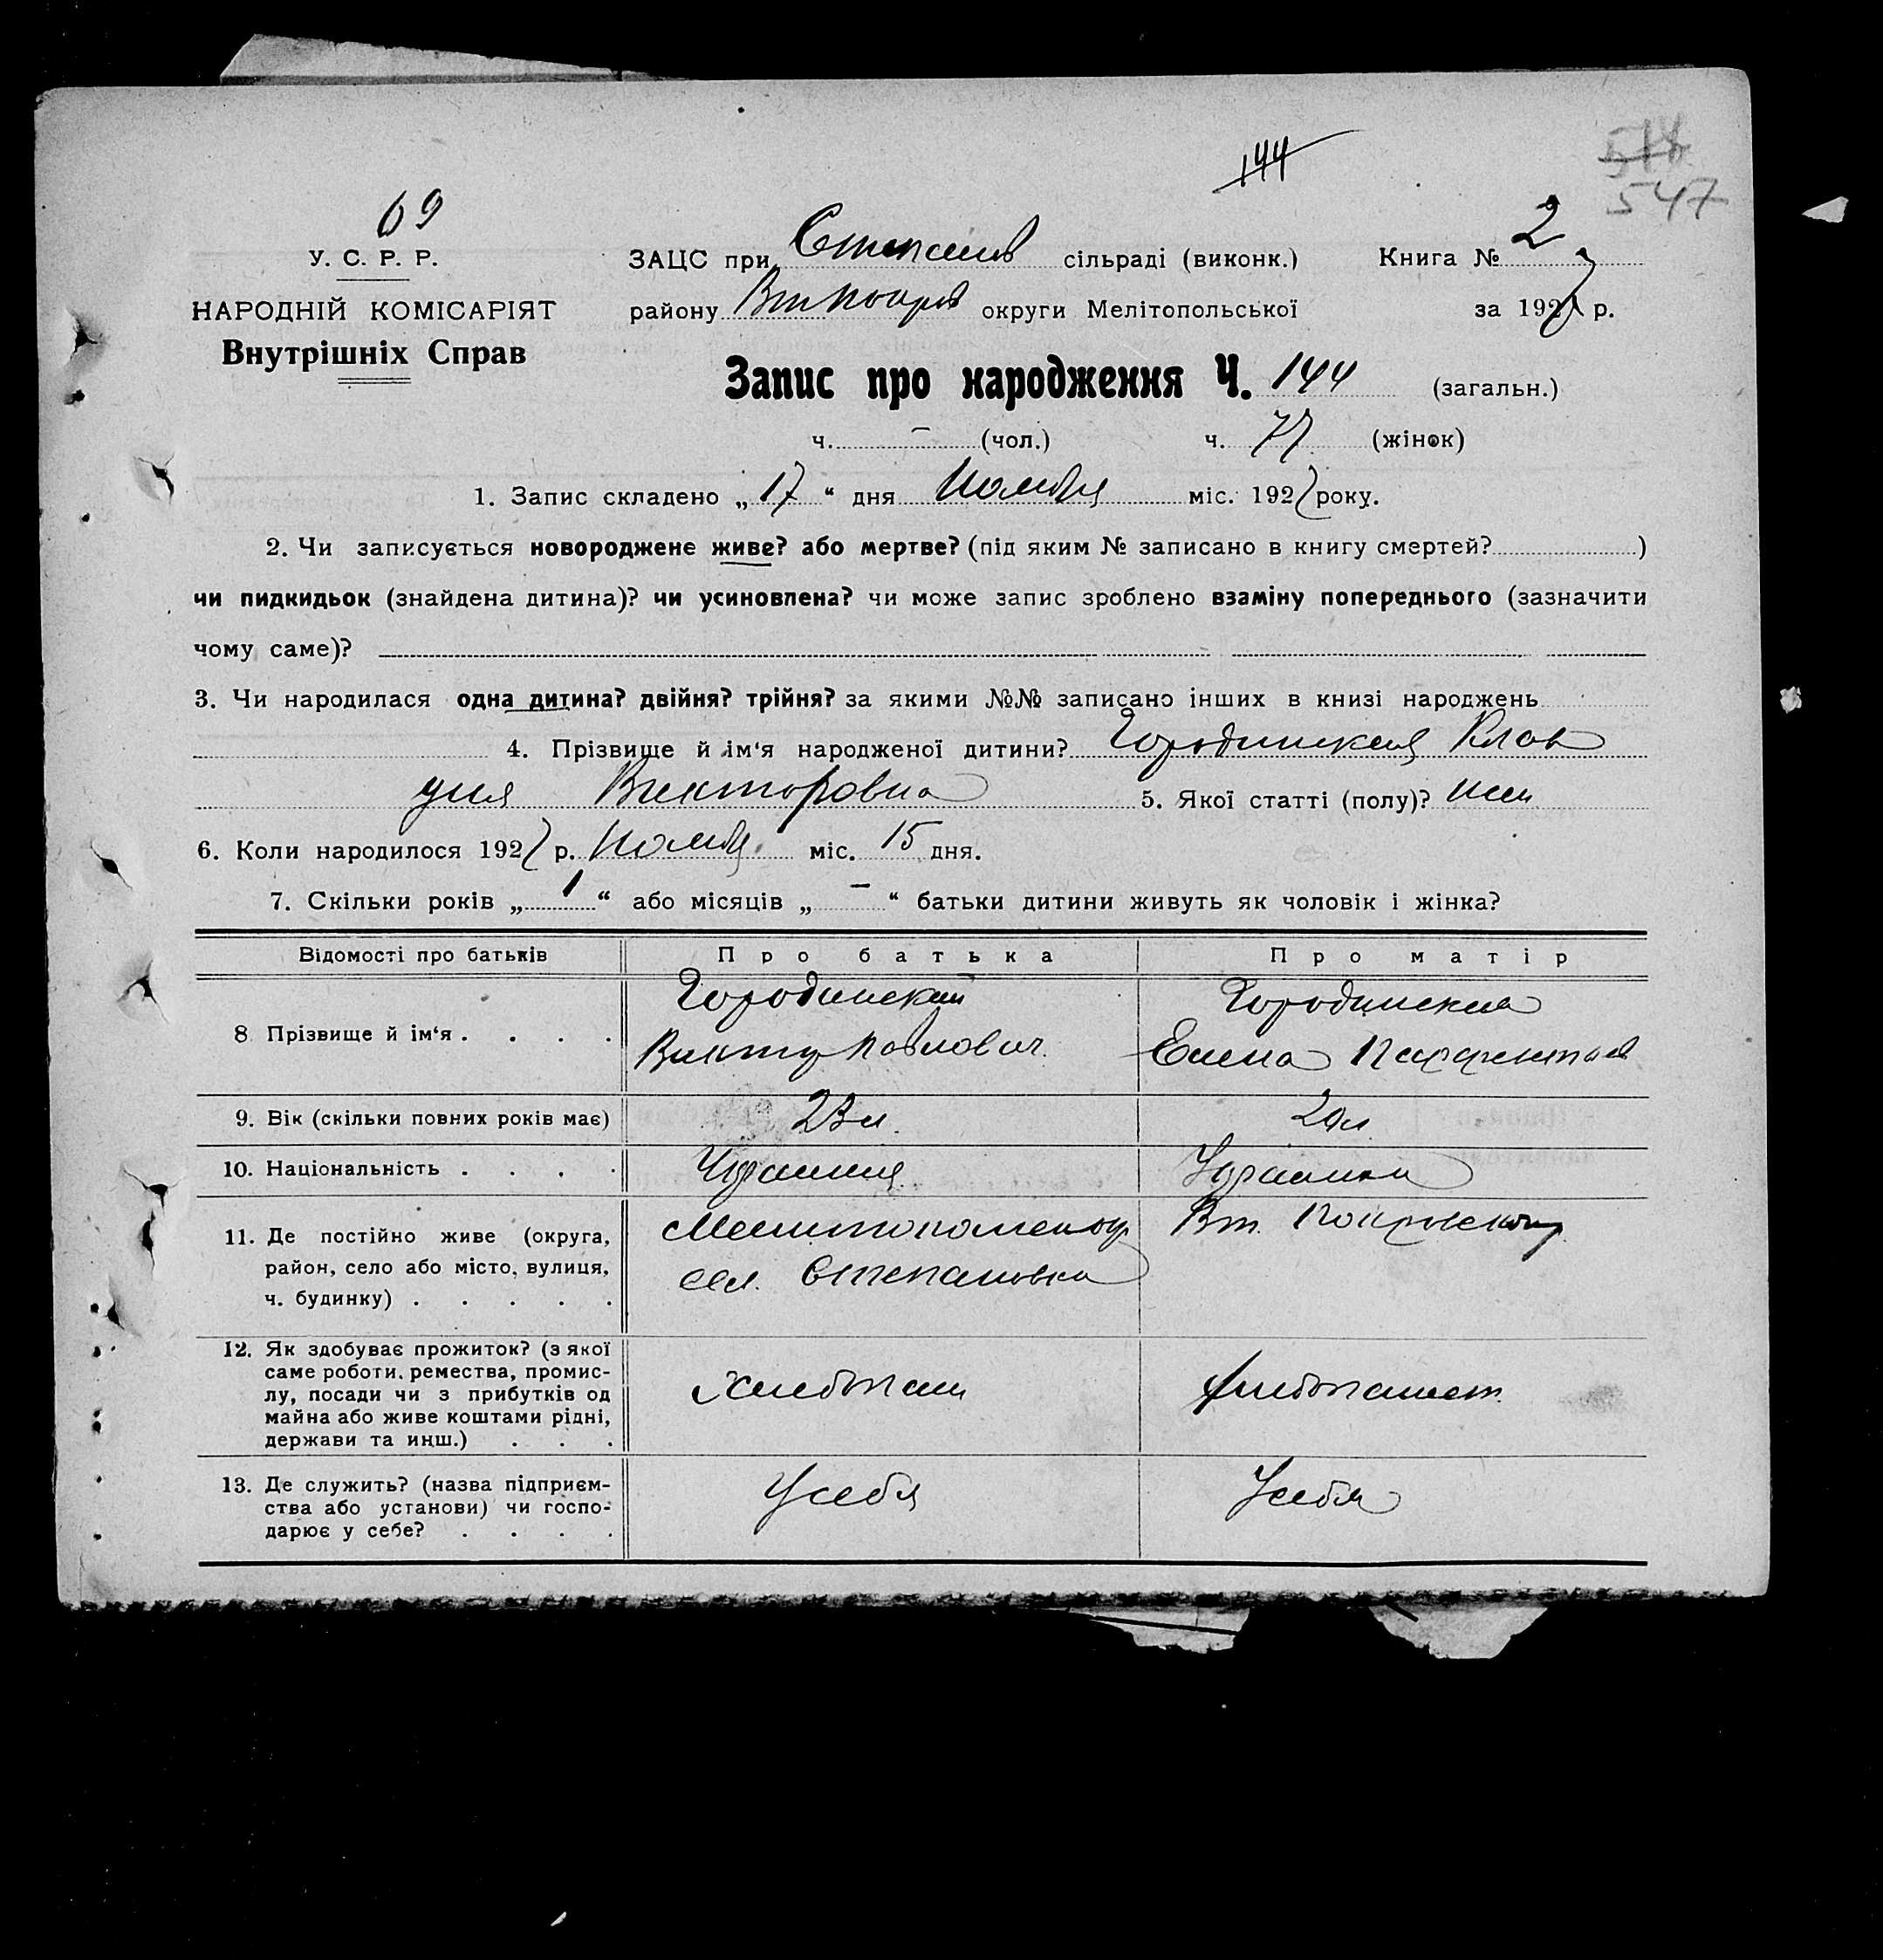 144
518
547
69
У. С. Р. Р.
НАРОДНІЙ КОМІСАРІЯТ
Внутрішніх Справ
ЗАЦС при Степанов сільраді (виконк.) Книга № 2
району Вт Покров округи Мелітопольської за 1927 р.
Запис про народження Ч. 144 (загальн.)
ч. – (чол.) ч. 77 (жінок)
1. Запис складено „ 17 “ дня Ноября міс. 1927 року.
2. Чи записується новороджене живе? або мертве? (під яким № записано в книгу смертей? )
чи пидкидьок (знайдена дитина)? чи усиновлена? чи може запис зроблено взаміну попереднього (зазначити
чому саме)?
3. Чи народилася одна дитина? двійня? трійня? за якими №№ записано інших в книзі народжень
4. Прізвище й ім‘я народженої дитини? Городинская Клав
дия Викторовна 5. Якої статті (полу)? жен
6. Коли народилося 1927 р. Ноябр. міс. 15 дня.
7. Скільки років „ 1 “ або місяців „ – “ батьки дитини живуть як чоловік і жінка?
Відомості про батьків Про батька Про матір
8 Прізвище й ім‘я . . . .
Городинский
Виктор Павлович
Городинская
Елена
9. Вік (скільки повних років має) 23 л. 20 л
10. Національність . . . . Украинец Украинка
11. Де постійно живе (округа,
район, село або місто, вулиця,
ч. будинку) . . . . .
Мелитополен окр. Вт. Покровског
сел. Степановка
12. Як здобуває прожиток? (з якої
саме роботи, ремества, промис-
лу, посади чи з прибутків од
майна або живе коштами рідні,
держави та инш.) . . .
Хлебопаш хлебопашест.
13. Де служить? (назва підприєм-
ства або установи) чи госпо-
дарює у себе? . . . .
У себя У себя